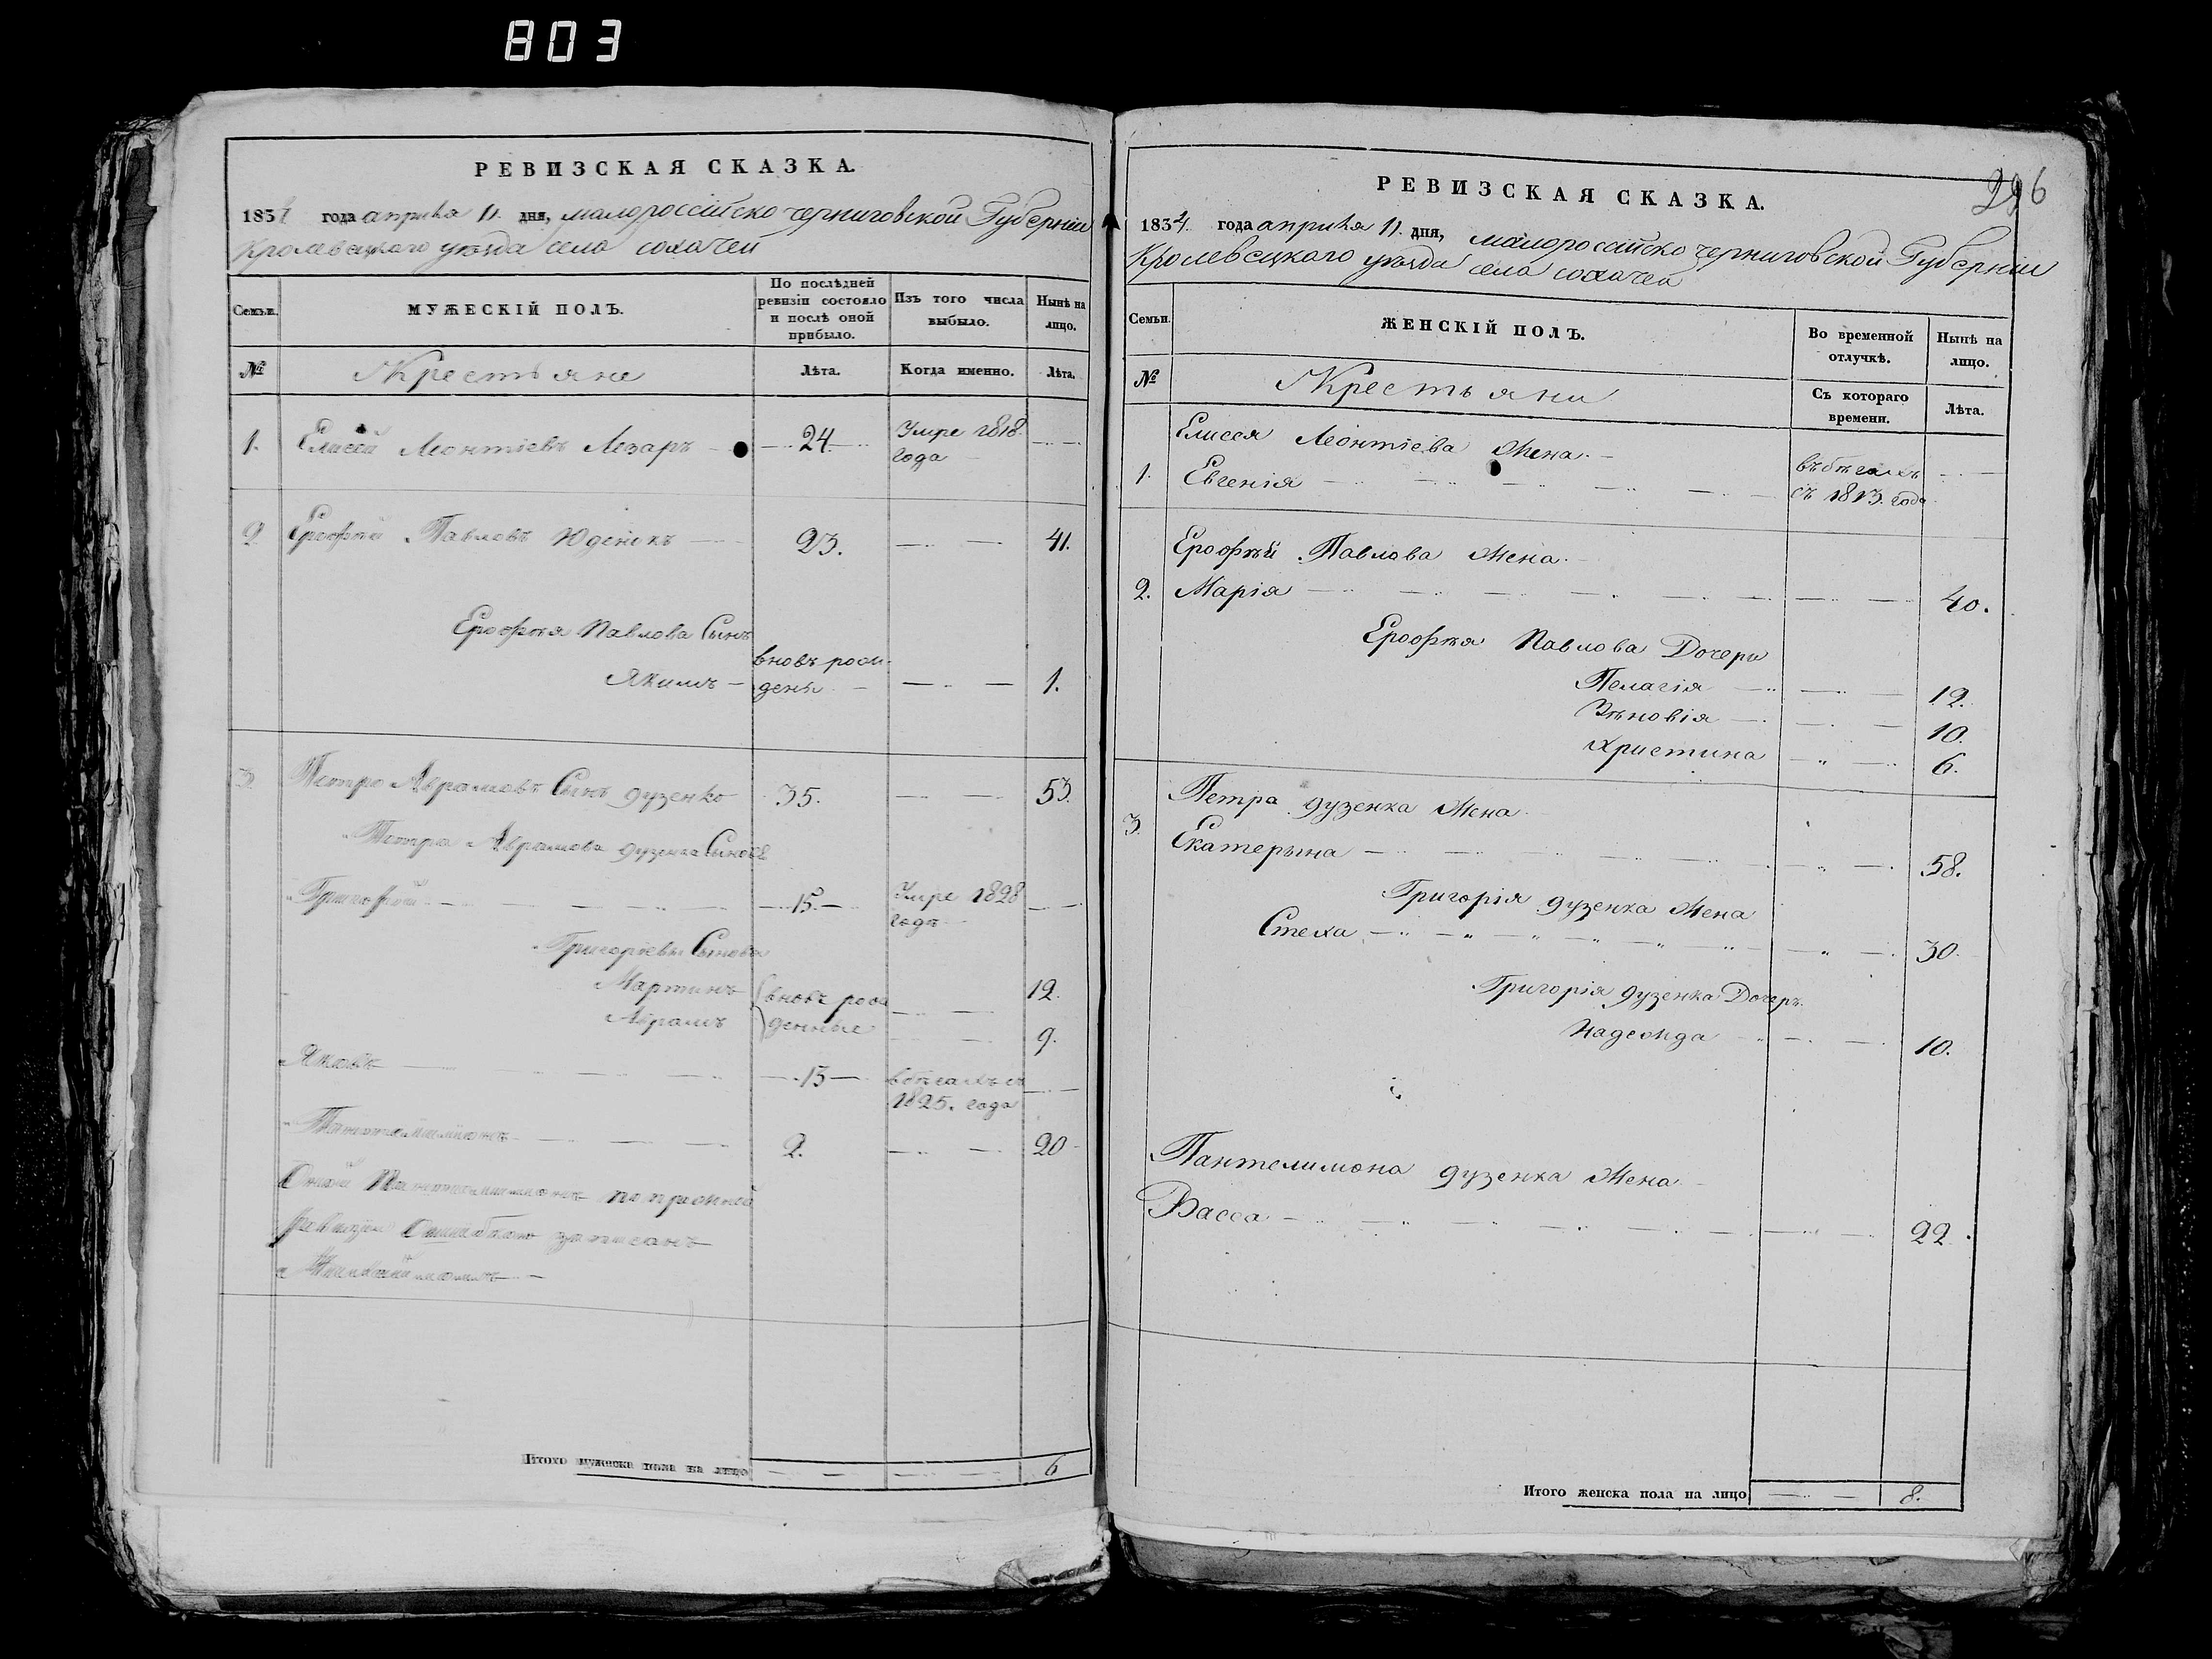 803
РЕВИЗСКАЯ СКАЗКА.
1834 года априля 11. дня, малороссійско черниговской Губерніи
Кролевецкаго уѣзда села сохачей
Семьи.
МУЖЕСКІЙ ПОЛЪ.
По послѣдней ревизіи состояло и послѣ оной прибыло.
Изъ того числа выбыло.
Нынѣ на лицо.
№
Крестьяне
Лѣта.
Когда именно.
Лѣта.
1. Елисей Леонтіевъ Лезаръ 24. Умре 1818. года
2 Ерофѣй Павловъ 23. 41.
Ерофѣя Павлова Сынъ
Якимъ вновь рожденъ 1.
3. Петро Аврамовъ Сынъ дузенко 35. 53.
Петра Аврамова дузенка Сыновѣ
Григорій 15. Умре 1828 годѣ
Григоріевы Сыновя
Мартинъ вновь рож 12.
Аврамъ денные 9.
Яковъ 15 вбѣгахъ съ 1825. года
Пантилимонъ 2. 20
Оной Пантилимонъ по прежней
ревизіи Ошибкою записанъ
Итого мужеска пола на лицо 6
296
РЕВИЗСКАЯ СКАЗКА.
1834. года априля 11. дня, малороссійско черниговской Губерніи
Кролевецкаго уѣзда села сохачей
Семьи.
ЖЕНСКІЙ ПОЛЪ.
Во временной отлучкѣ.
Нынѣ на лицо.
№
Крестьяни
Съ котораго времени.
Лѣта.
Елисея Леонтіева Жена
1. Евгенія въбѣгахъ съ 1813. года
Ерофѣй Павлова Жена
2. Марія 40.
Ерофѣя Павлова Дочери
Пелагія 12.
Зѣновія 10.
Христина 6.
Петра дузенка Жена
3. Екатерына 58.
Григорія дузенка Жена
Стеха 30.
Григорія дузенка Дочерь
Надежда 10.
Пантелимона дузенка Жена
Васса 22.
Итого женска пола на лицо 8.